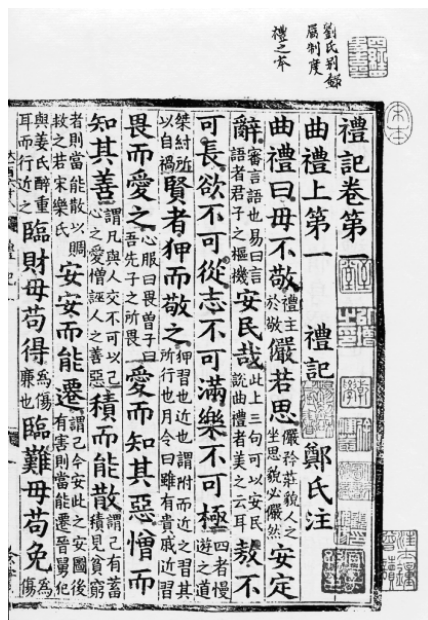 劉氏別錄
屬制度
禮記卷第一
曲禮上第一 禮記 鄭氏注
曲禮曰毋不敬禮主於敬儼若思儼矜莊貌人之坐思貌必儼然安定
辭審言語也易曰言語者君子之樞機安民哉此上三句可以安民說曲禮者美之云耳敖不
可長欲不可從志不可滿樂不可極四者慢遊之道
桀紂所以自禍賢者狎而敬之狎習也近也謂附而近之習其所行也月令曰雖有貴戚近習
畏而愛之心服曰畏曾子曰吾先子之所畏愛而知其惡憎而
知其善謂凡與人交不可以己心之愛憎誣人之善惡積而能散謂己有蓄積見貧窮
者則當能散以賙救之若宋樂氏安安而能遷謂己今安此之安圖後有害則當能遷晉舅犯
與姜氏醉重耳而行近之臨財毋苟得為傷廉也臨難毋苟免為傷